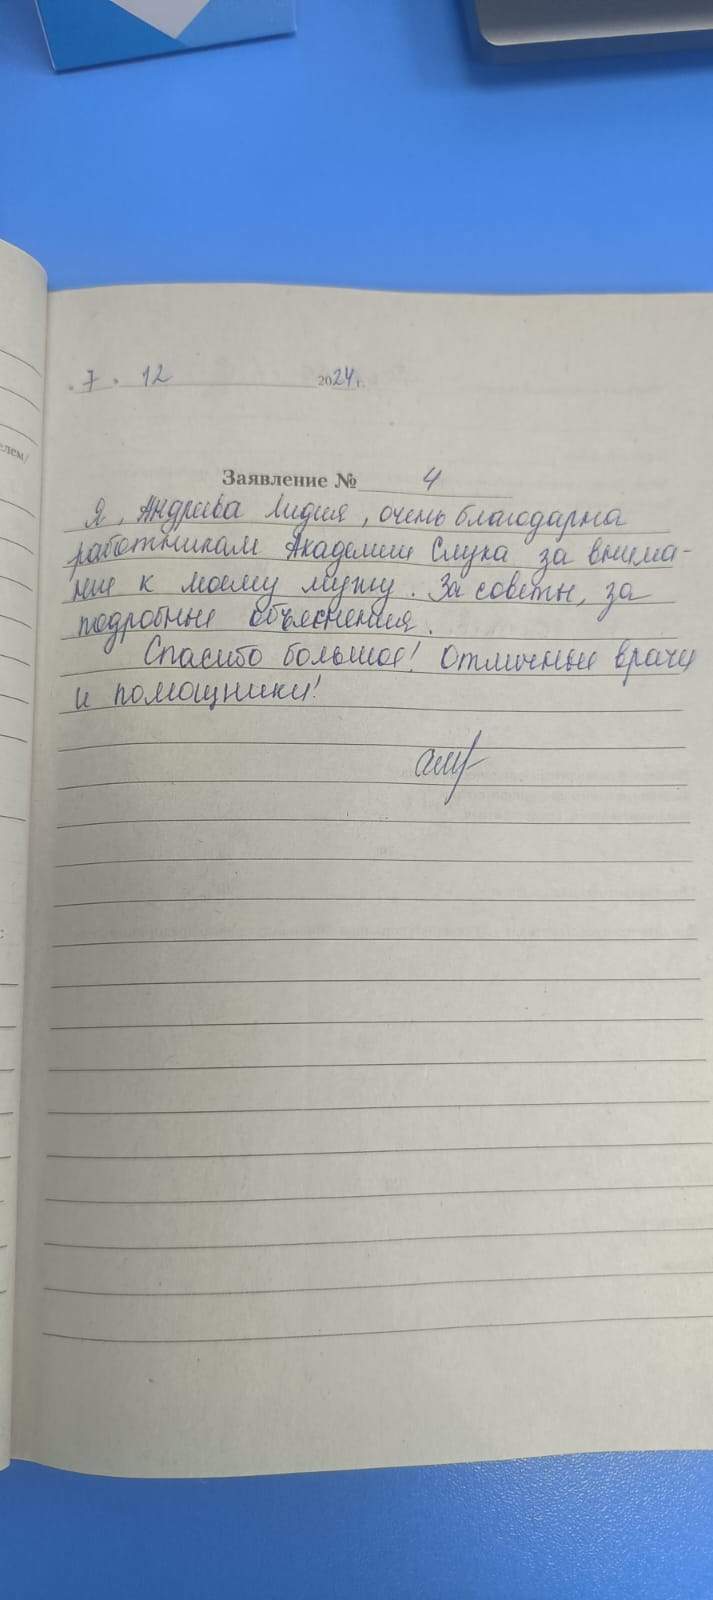 елем/
7. 12 2024 г.
Заявление № 4
Я, Андреева Лидия, очень благодарна
работникам Академии Слуха за внима-
ние к моему мужу. За советы, за
подробные объяснения.
Спасибо большое! Отличные врачи
и помощники!